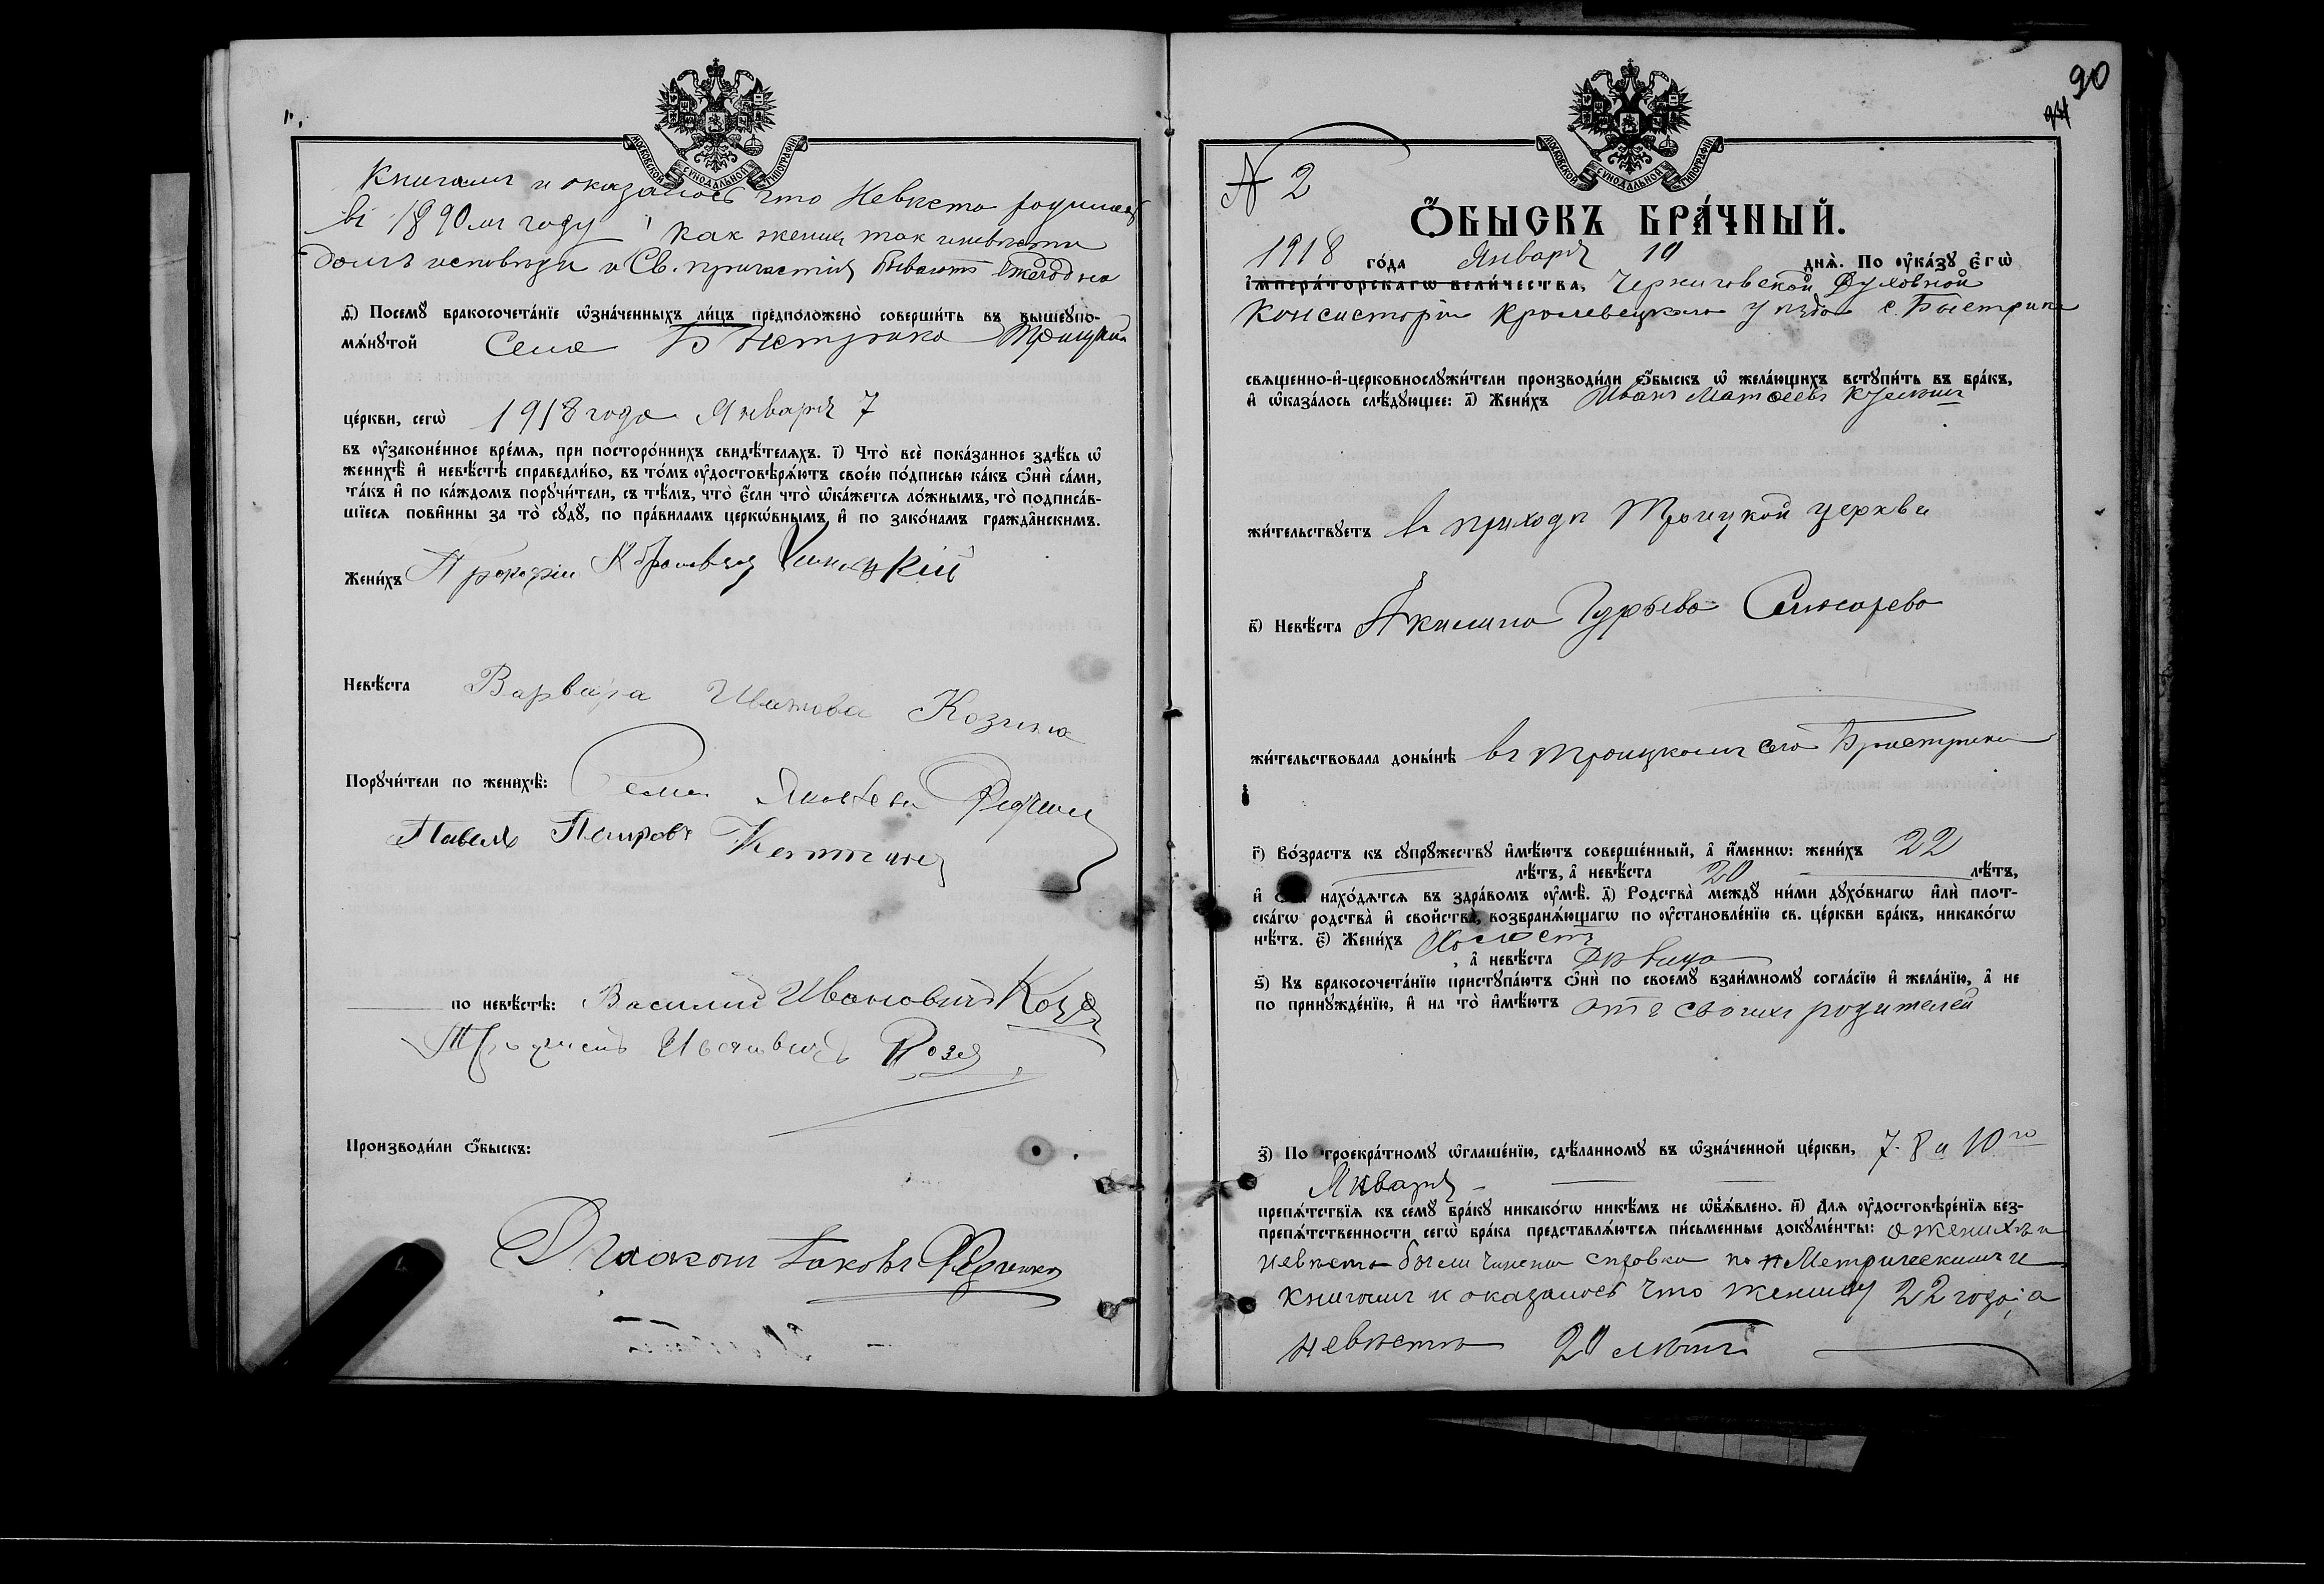 МОСКОВСКОЙ СѴНОДАЛЬНОЙ ТИПОГРАФІИ
Книгамъ и оказалось что Невѣста родилась
въ 1890мъ году, как жених так и невѣста
долгъ исповѣди и Св. причастія бывают ежегодно
д҃і) Посемꙋ̀ бракосочета́нїе ѡ҆зна́ченныхъ ли́цъ предположено̀ соверши́ть въ вышеꙋпо-
мѧ́нꙋтой Села Быстрика Троицкой
це́ркви, сегѡ̀ 1918 года Января 7
въ ᲂу҆зако́ненное вре́мѧ, при посторо́ннихъ свидѣ́телѧхъ. і҃) Что̀ всѐ пока́занное здѣ́сь ѡ҆
женихѣ̀ и҆ невѣ́стѣ справедли́во, въ то́мъ ᲂу҆достовѣрѧ́ютъ свое́ю по́дписью ка́къ ѻ҆нѝ са́ми,
та́къ и҆ по ка́ждомъ порꙋчи́тели, съ тѣ́мъ, что̀ є҆́сли что̀ ѡ҆ка́жетсѧ ло́жнымъ, то̀ подписа́в-
шїесѧ пови́нны за то̀ сꙋдꙋ̀, по пра́виламъ церкѡ́внымъ и҆ по зако́намъ гражда́нскимъ.
Жени́хъ
Невѣ́ста Варвара Иванова Козина
Порꙋчи́тели по женихѣ̀:
Павелъ Петровъ
по невѣ́стѣ: Василий Ивановичъ Коза
Иванович Коза
Производи́ли ѻ҆́быскъ:
Діаконъ Іаковъ Федченко
90
МОСКОВСКОЙ СѴНОДАЛЬНОЙ ТИПОГРАФІИ
№ 2
Ѻ҆́БЫСКЪ БРА́ЧНЫЙ.
1918 го́да Января 10 днѧ̀. По ᲂу҆ка́зꙋ Є҆гѡ̀
І҆мпера́торскагѡ вели́чества, Черниговской Духовной
Консисторіи Кролевецкаго уѣзда с. Быстрика
свѧщенно-и҆-церковнослꙋжи́тели производи́ли ѻ҆́быскъ ѡ҆ жела́ющихъ встꙋпи́ть въ бра́къ,
и҆ ѡ҆каза́лось слѣ́дꙋющее: а҃) Жени́хъ Иванъ Матѳеевъ
жи́тельствꙋетъ въ приходѣ Троицкой церкви
в҃) Невѣ́ста Акилина Гурьева Слюсарева
жи́тельствовала доны́нѣ въ троицкомъ
г҃) Во́зрастъ къ сꙋпрꙋ́жествꙋ и҆мѣ́ютъ соверше́нный, а҆ и҆́меннѡ: жени́хъ 22
лѣ́тъ, а҆ невѣ́ста 20 лѣ́тъ,
и҆ нахо́дѧтсѧ въ здра́вомъ ᲂу҆мѣ̀. д҃) Родства̀ междꙋ̀ ни́ми дꙋхо́внагѡ и҆лѝ плот-
ска́гѡ родства̀ и҆ сво́йства, возбранѧ́ющагѡ по ᲂу҆становле́нїю св. це́ркви бра́къ, никако́гѡ
нѣ́тъ. є҃) Жени́хъ Холостъ
, а҆ невѣ́ста Дѣвица
ѕ҃) Къ бракосочета́нїю пристꙋпа́ютъ ѻ҆нѝ по своемꙋ̀ взаи́мномꙋ согла́сїю и҆ жела́нїю, а҆ не
по принꙋжде́нїю, и҆ на то̀ и҆мѣ́ютъ отъ своихъ родителей
з҃) По троекра́тномꙋ ѡ҆глаше́нїю, сдѣ́ланномꙋ въ ѡ҆зна́ченной це́ркви, 7. 8 и 10го
Января
препѧ́тствїѧ къ семꙋ̀ бра́кꙋ никако́гѡ никѣ́мъ не ѡ҆б̾ѧ́влено. и҃) Для ᲂу҆достовѣре́нїѧ без-
препѧ́тственности сегѡ̀ бра́ка представлѧ́ютсѧ пи́сьменные докꙋме́нты: о женихѣ и
невѣстѣ были чинены справки по Метрическимъ
книгамъ и оказалось что жениху 22 года, а
невѣстѣ 20 лѣтъ